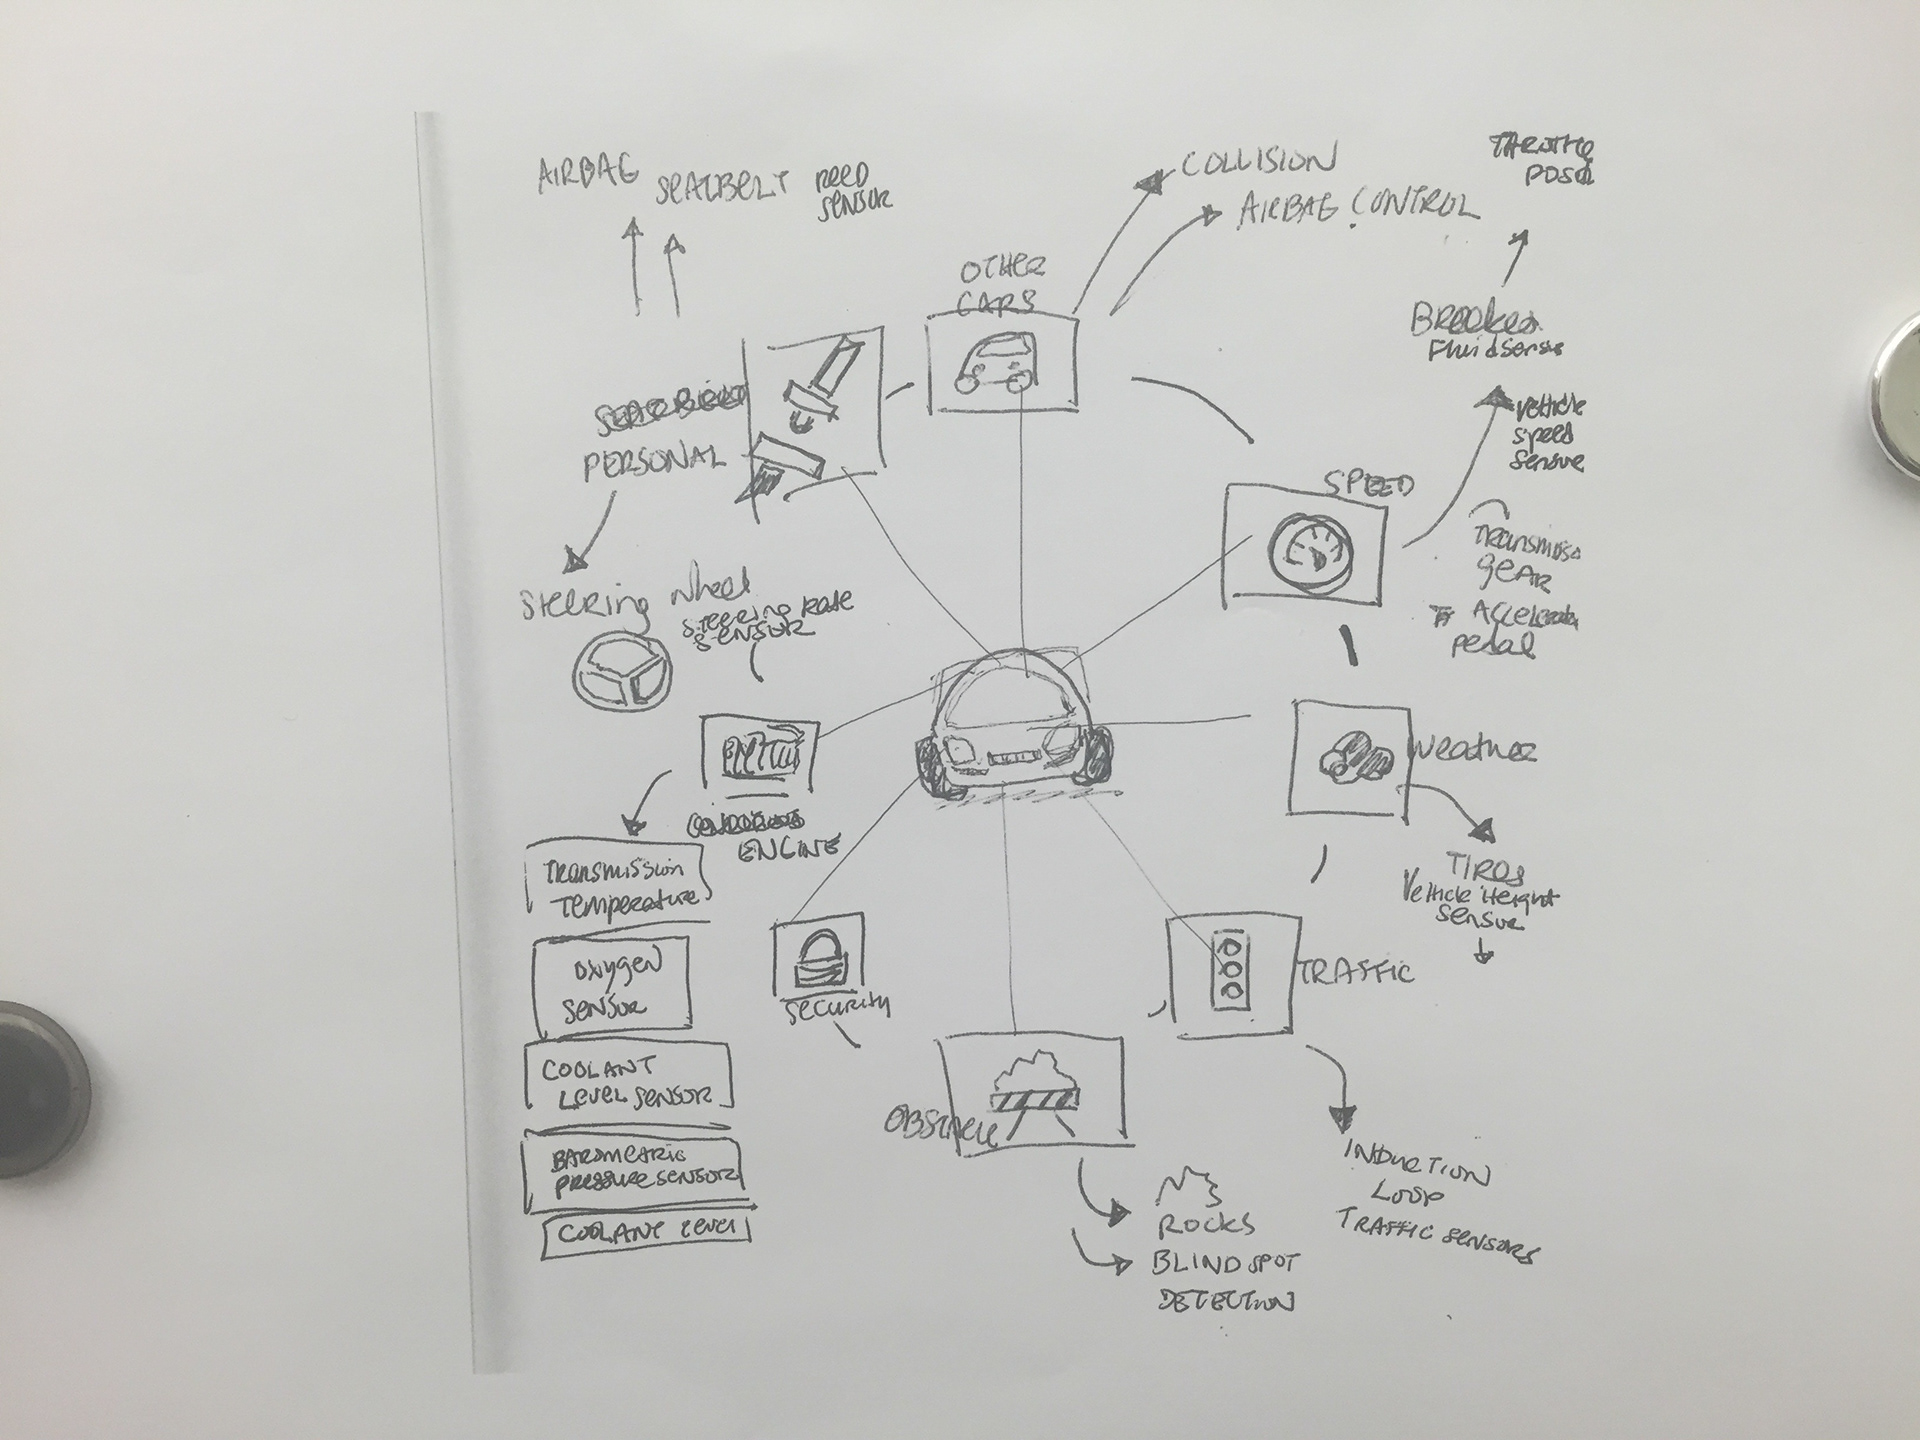 AIRBAG
SEATBELT
REED
SENSOR
COLLISION
AIRBAG CONTROL
THROTTLE
OTHER
CARS
BREAKES
Fluid Sensor
Vehicle
Speed
Sensor
PERSONAL
SPEED
Transmiss
GEAR
Accelerator
pedal
Steering Wheel
Steering Rate
SENSOR
Weather
ENGINE
TIRES
Vehicle Height
Sensor
Transmission
Temperature
Oxygen
SENSOR
SECURITY
TRAFFIC
COOLANT
LEVEL SENSOR
OBSTACLE
BAROMETRIC
PRESSURE SENSOR
COOLANT LEVEL
ROCKS
BLIND SPOT
DETECTION
INDUCTION
LOOP
TRAFFIC SENSORS